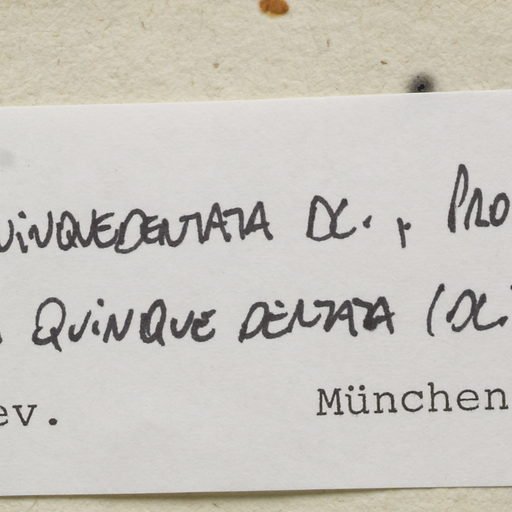 QUINQUEDENTATA DC., PRO
QUINQUE DENTATA (DC.
ev. München